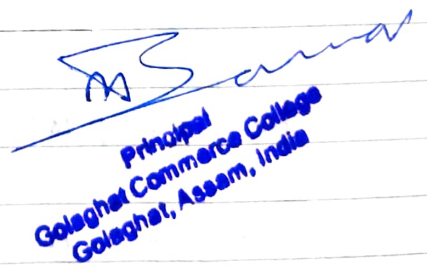 Principal
Golaghat Commerce College
Golaghat, Assam, India